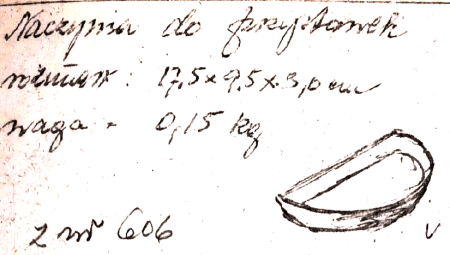 Naczynia do przystawek
rozmiar: 17,5 x 9,5 x 3,0 cm
waga - 0,15 kg
z nr 606